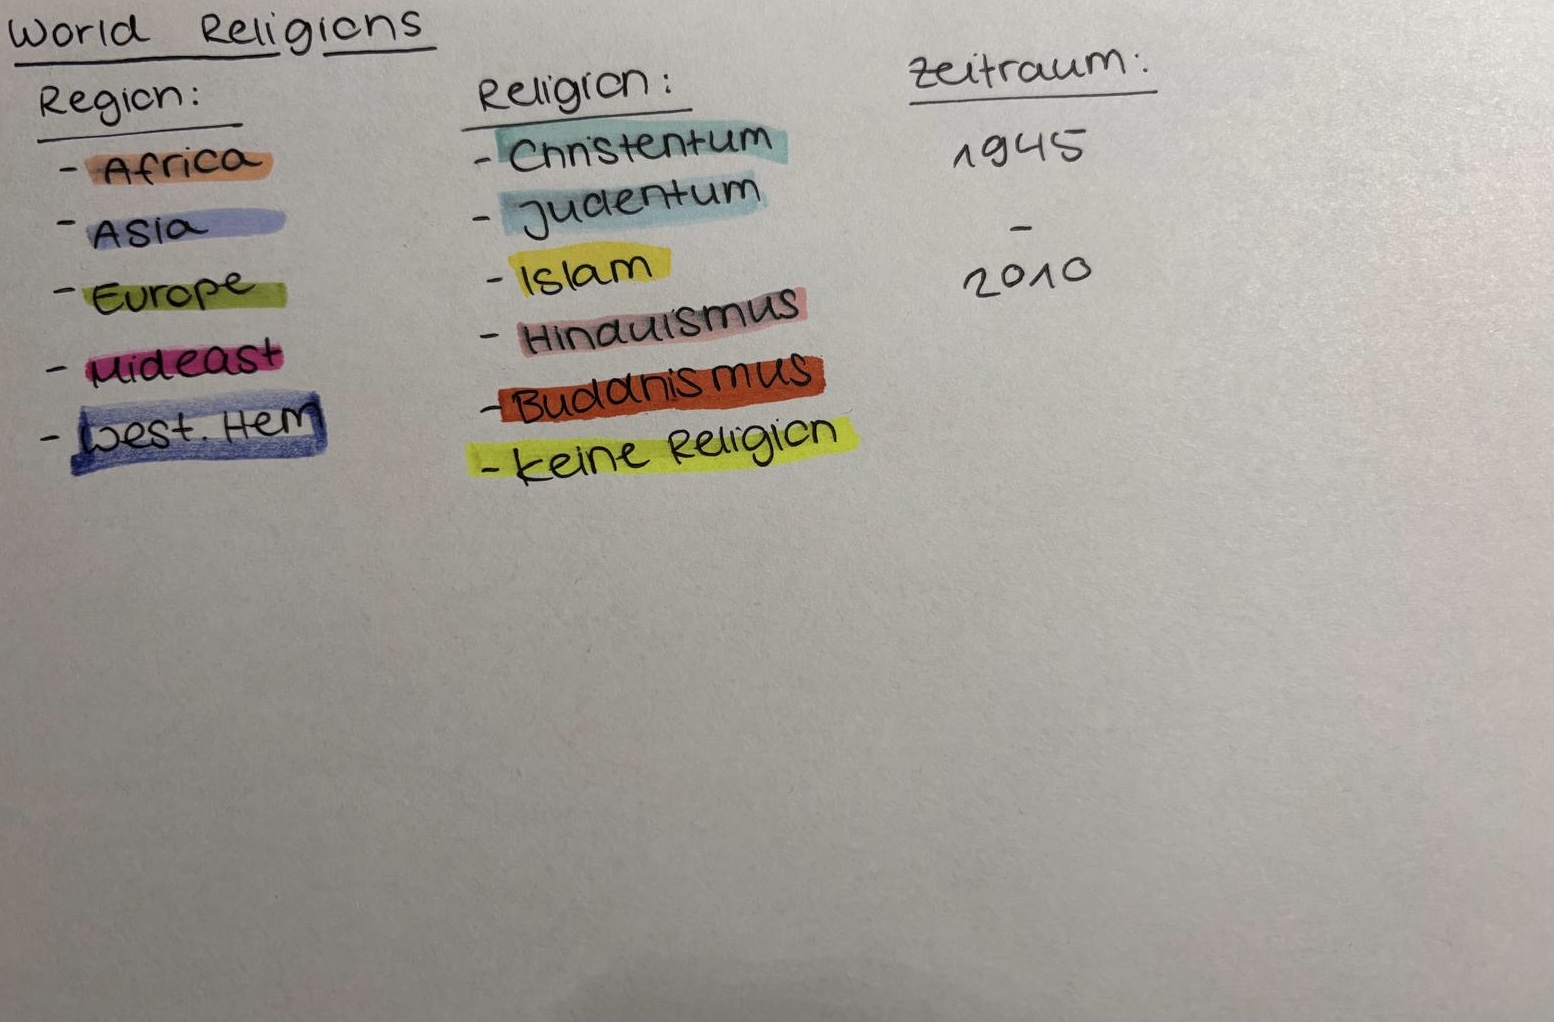 World Religions
Region:
- Africa
- Asia
- Europe
- Mideast
- West. Hem
Religion:
- Christentum
- Judentum
- Islam
- Hinduismus
- Buddhismus
- keine Religion
Zeitraum:
1945
-
2010